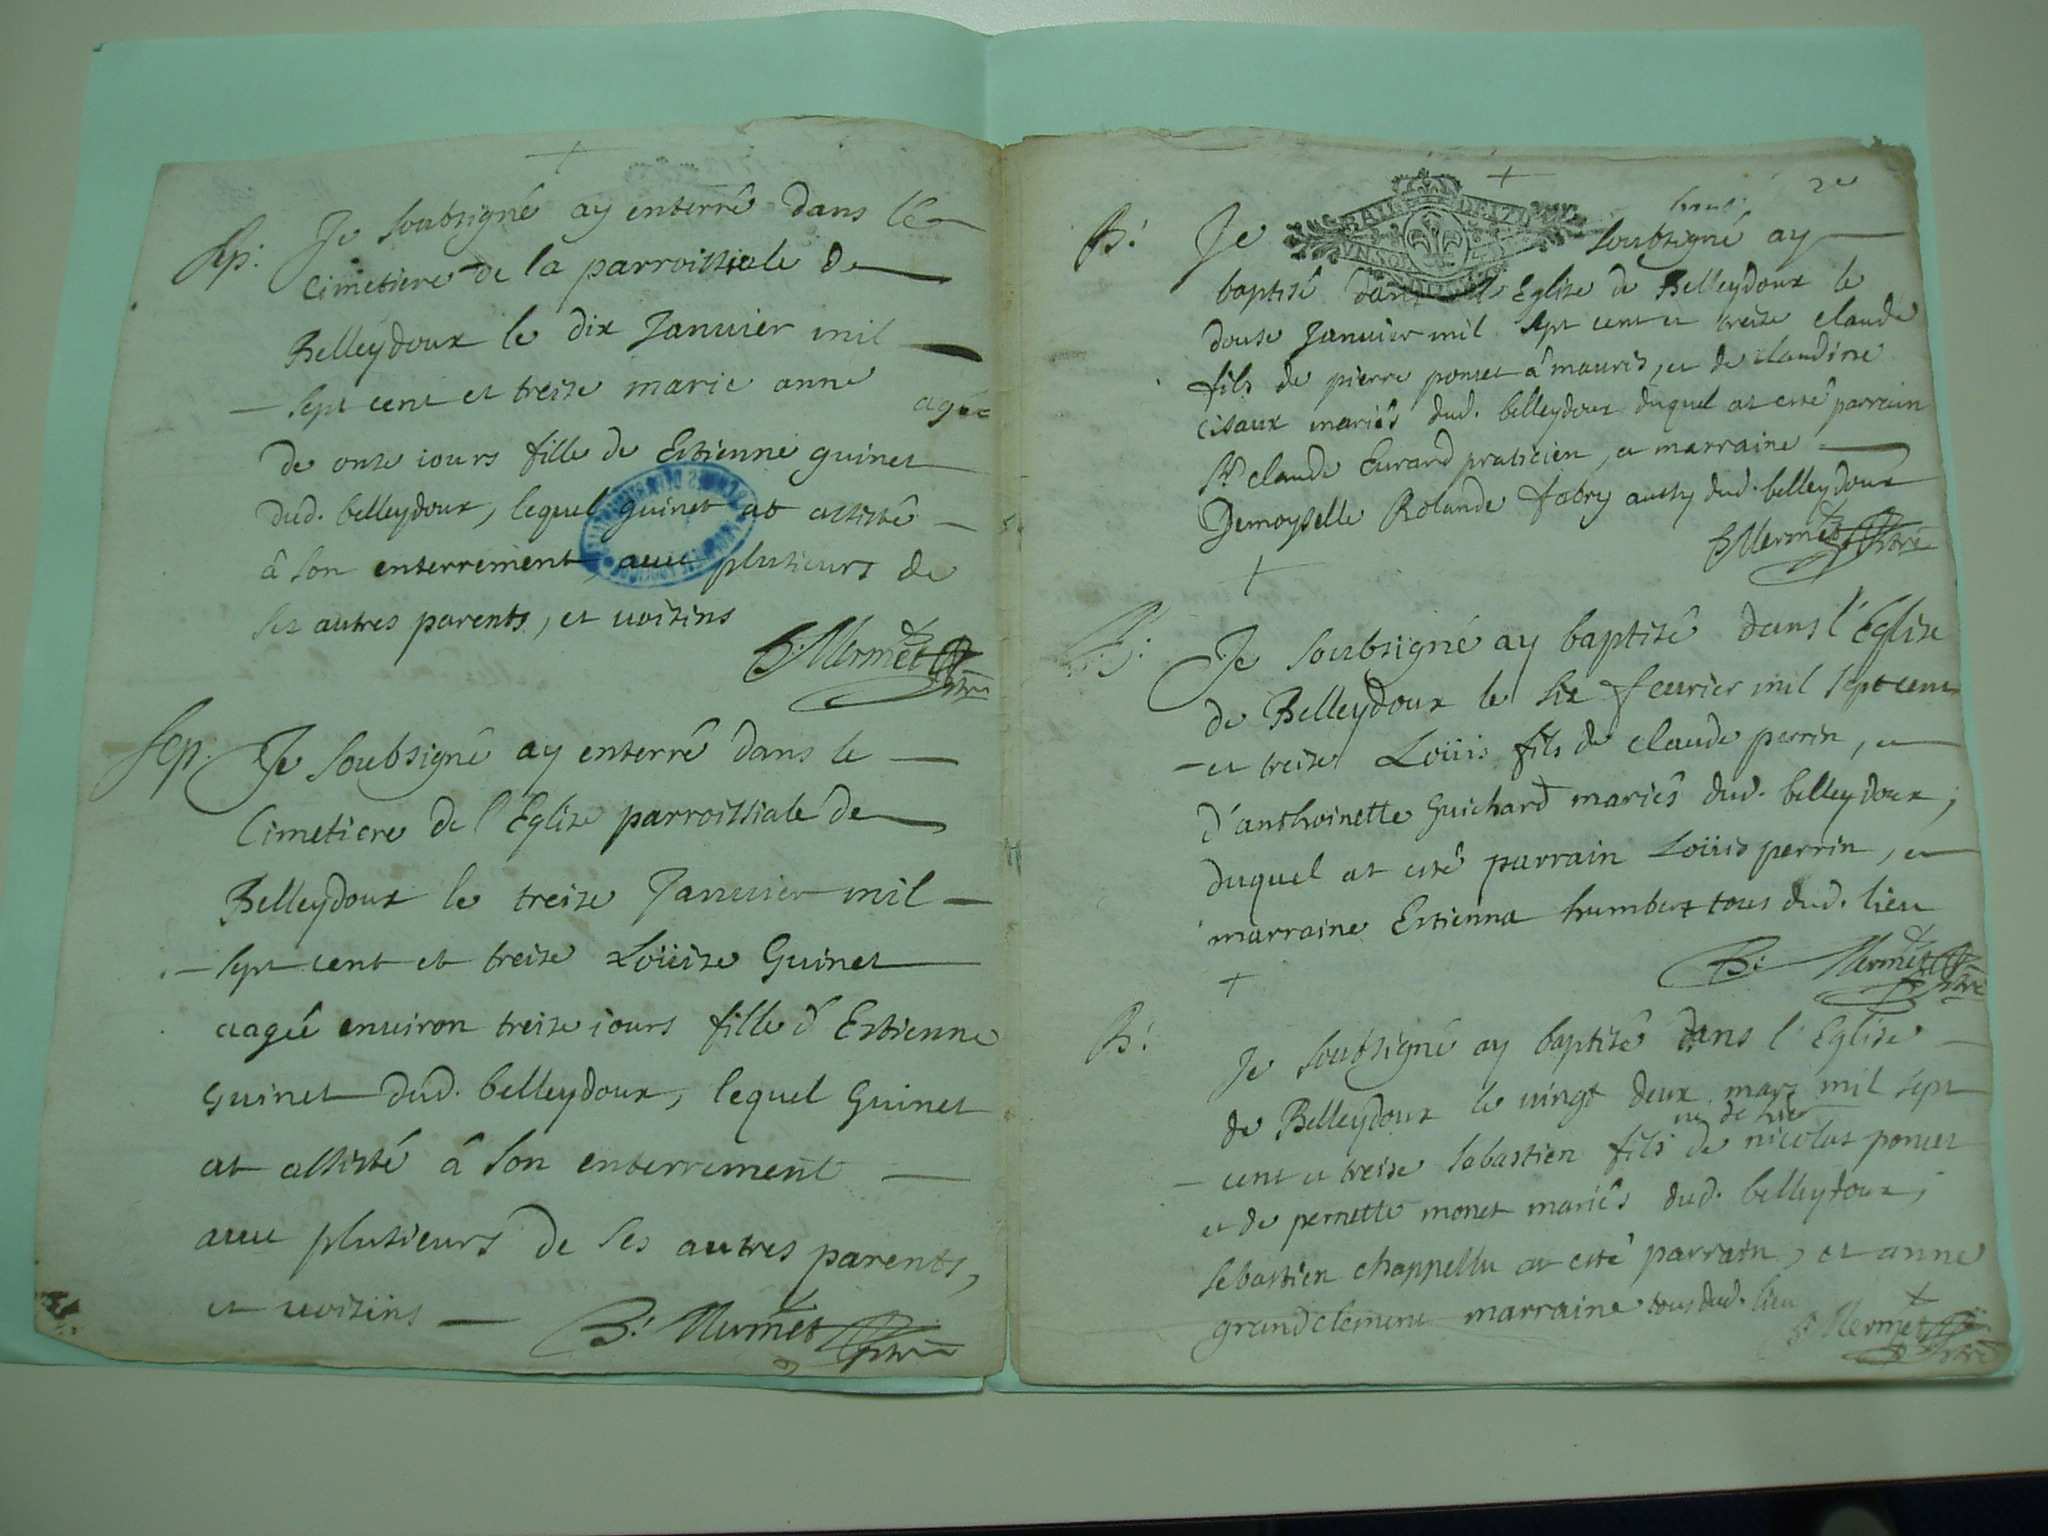 Sep. Je soubsigné ay enterré dans le
Cimetiere de la parroissiale de
Belleydoux le dix Januier mil
sept cent et treise marie anne agée
de onse iours fille de Estienne guinet
dud. belleydoux, lequel guinet at assisté
â son enterrement, auec plusieurs de
ses autres parents, et uoisins
B. Mermet ptre
Sep. Je soubsigné ay enterré dans le
Cimetiere de l'Eglise parroissiale de
Belleydoux le treise Januier mil
sept cent et treise Loüise Guinet
aagée enuiron treise iours fille d'Estienne
Guinet dud. belleydoux, lequel Guinet
at assisté â son enterrement
auec plusieurs de ses autres parents,
et uoisins B. Mermet ptre
2e
B. Je soubsigné ay
baptisé dans l'Eglise de Belleydoux le
douse Januier mil sept cent et treise claude
fils de pierre poncet â mauris, et de claudine
cisaux mariés dud. belleydoux duquel at esté parrain
Sr claude Eurard praticien, et marraine
Demoyselle Rolande fabry aussy dud. belleydoux
B. Mermet ptre
B. Je soubsigné ay baptisé dans l'Eglise
de Belleydoux le six feurier mil sept cent
et treise Loüis fils de claude perrin, et
d'anthoinette Guichard mariés dud. belleydoux,
duquel at esté parrain Loüis perrin, et
marraine Estienna humbert tous dud. lieu
B. Mermet ptre
B. Je soubsigné ay baptisé dans l'Eglise
de Belleydoux le uingt deux mars mil sept
né de hier
cent et treise sebastien fils de nicolas poncet
et de pernette monet mariés dud. belleydoux,
sebastien chappellu at esté parrain, et anne
grandclement marraine tous dud. lieu
B. Mermet ptre